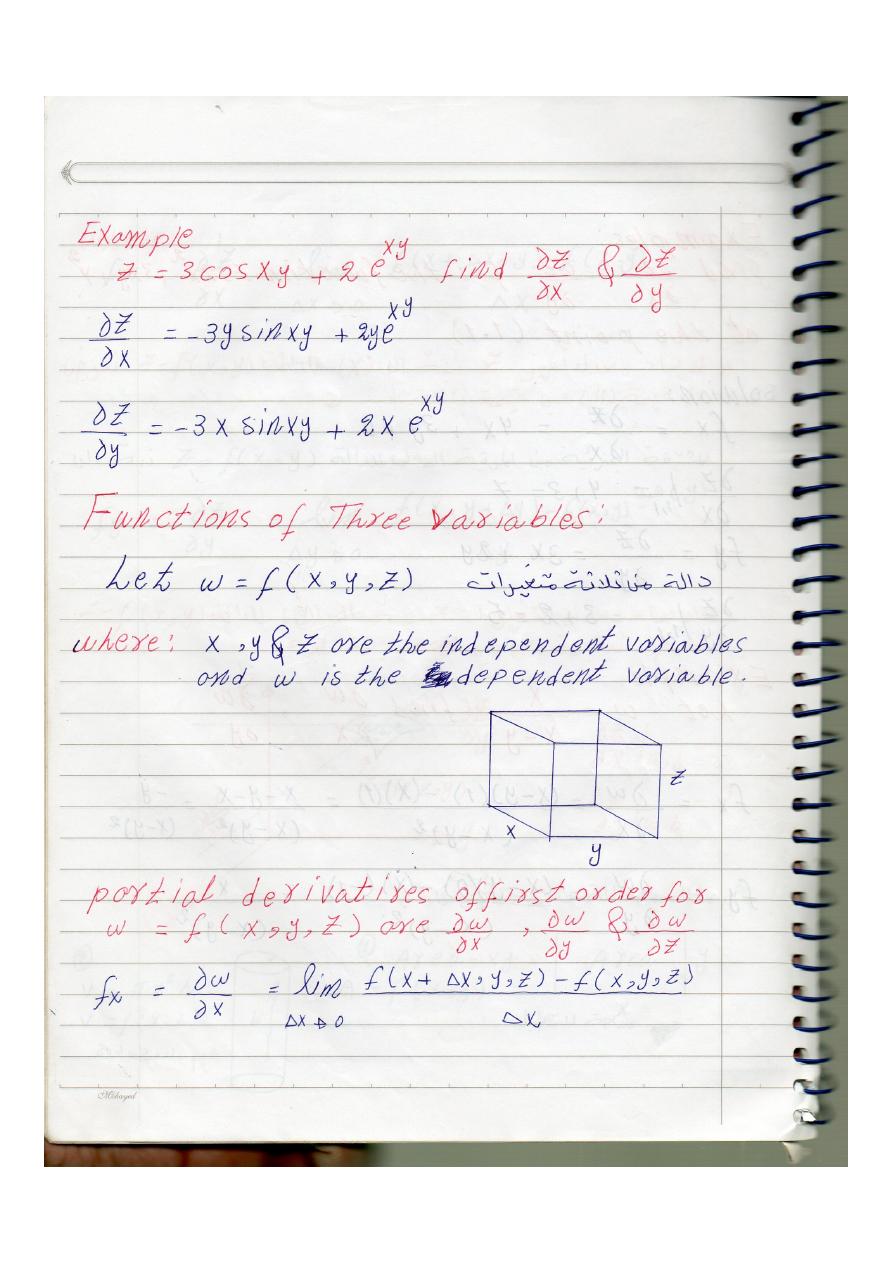 Example
z = 3cosxy + 2e^xy find ∂z/∂x & ∂z/∂y
∂z/∂x = -3y sinxy + 2ye^xy
∂z/∂y = -3x sinxy + 2x e^xy
Functions of Three variables:
Let w = f(x,y,z) دالة من ثلاثة متغيرات
where: x,y & z are the independent variables
and w is the dependent variable.
z
x
y
partial derivatives of first order for
w = f(x,y,z) are ∂w/∂x, ∂w/∂y & ∂w/∂z
fx = ∂w/∂x = lim Δx→0 f(x+Δx,y,z)-f(x,y,z)/Δx
Mohayed